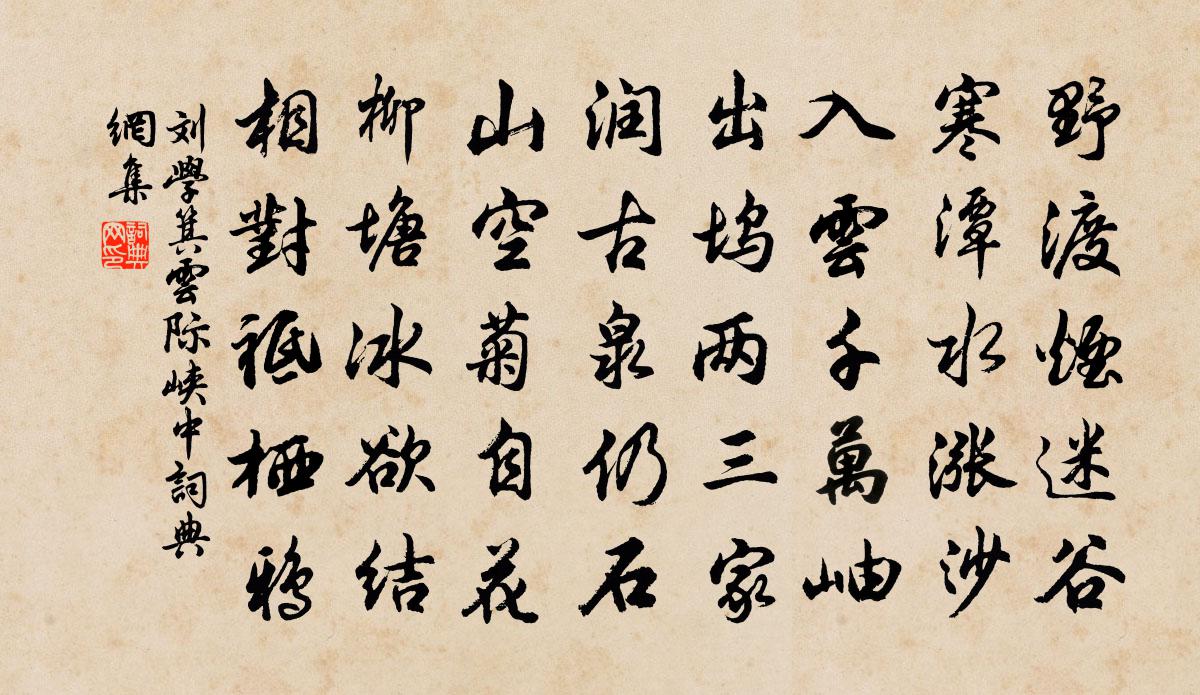 野渡煙迷谷
寒潭水漲沙
入雲千萬岫
出坞两三家
润古泉仍石
山空菊自花
柳塘冰欲结
相對祗栖鴉
刘學箕雲际峡中詞典
網集
詞典
网印